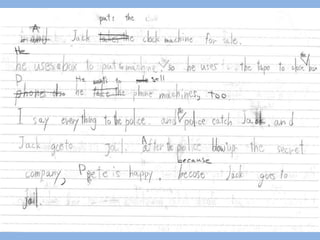 puts the
A Jack the clock machine for sale.
He
he uses a box to put machine, so he uses the tape to box
P He sell
phone he the phone machines, too.
I say everything to the police. and police catch Jack. and
Jack goes to jail. After the police blow up the secret
because
company, Pete is happy. becose Jack goes to
jail.